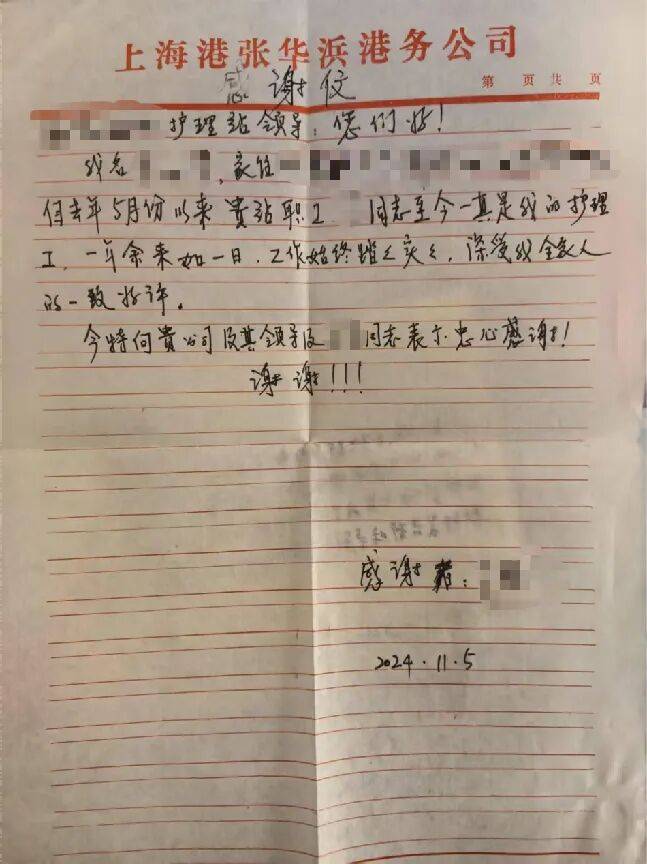 上海港张华浜港务公司
第 页共 页
感谢信
护理站领导：您们好！
我名 ，家住
自去年5月份以来 贵站职工 同志至今一直是我的护理
工，一年余来如一日，工作始终踏踏实实，深受我全家人
的一致好评。
今特向贵公司及其领导及 同志表示忠心感谢！
谢谢！！！
感谢者：
2024.11.5